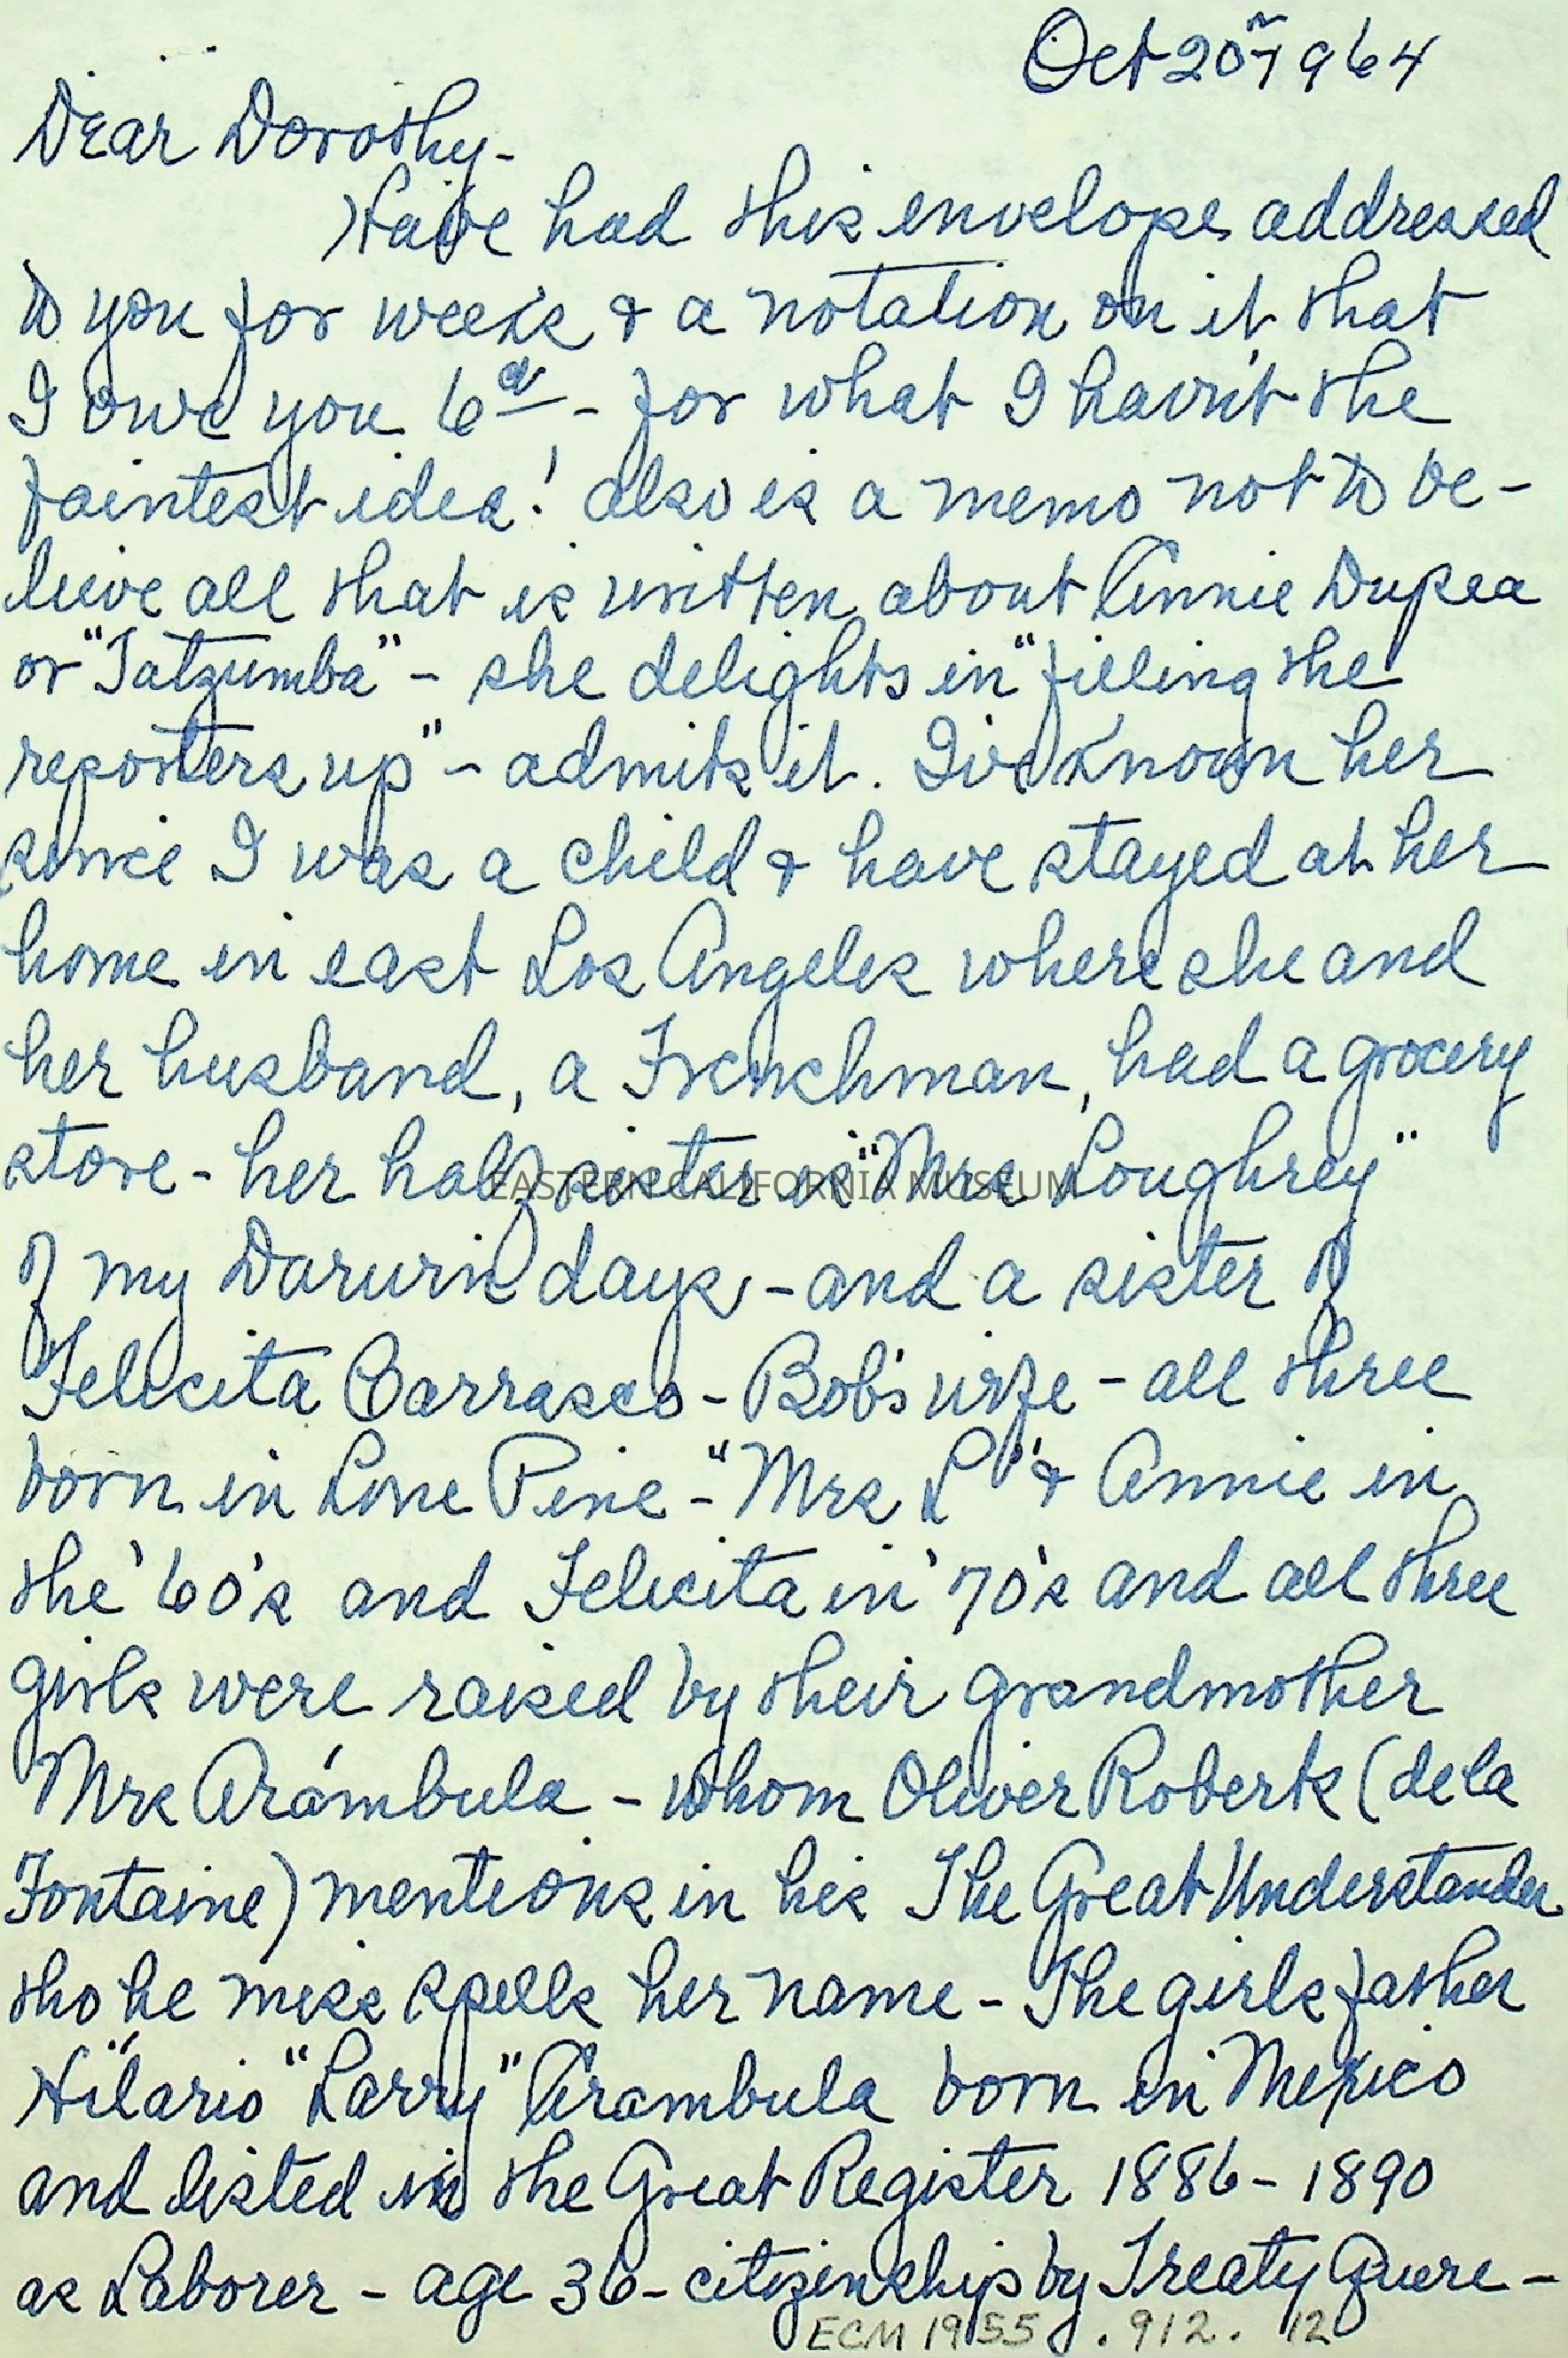 Oct 20th 1964
Dear Dorothy -
Have had this envelope addressed
to you for weeks & a notation on it that
I owe you 6¢ - for what I havn't the
faintest idea! also is a memo not to be-
lieve all that is written about Annie Dupea
or "Tatzumba" - she delights in "filling the
reporters up" - admits it. I've known her
since I was a child & have stayed at her
home in east Los Angeles where she and
her husband, a Frenchman, had a grocery
store - her half sister is "Mrs Loughrey"
EASTERN CALIFORNIA MUSEUM
of my Darwin days, - and a sister of
Felicita Carrasco - Bob's wife - all three
born in Lone Pine - "Mrs L" & Annie in
the '60's and Felicita in '70's and all three
girls were raised by their grandmother
Mrs Arámbula - whom Oliver Roberts (de la
Fontaine) mentions in his The Great Understander
tho he miss spells her name - The girls father
Hilario "Larry" Arambula born in Mexico
and listed in the Great Register 1886 - 1890
as Laborer - age 36 - citizenship by Treaty Quere -
ECM 1955 . 912 . 12